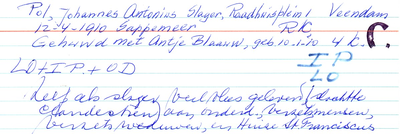 Pol, Johannes Antonius Slager, Raadhuisplein 1 Veendam
12-4-1910 Sappemeer R.K.
Gehuwd met Antje Blaauw, geb. 10-1-10 4 K. C.
I P
LO + I P + O D LO
Heeft als slager veel vlees geleverd /
clandestien aan onderd., verzetsmensen,
verzetsweduwen, en Huize St. Franciscus